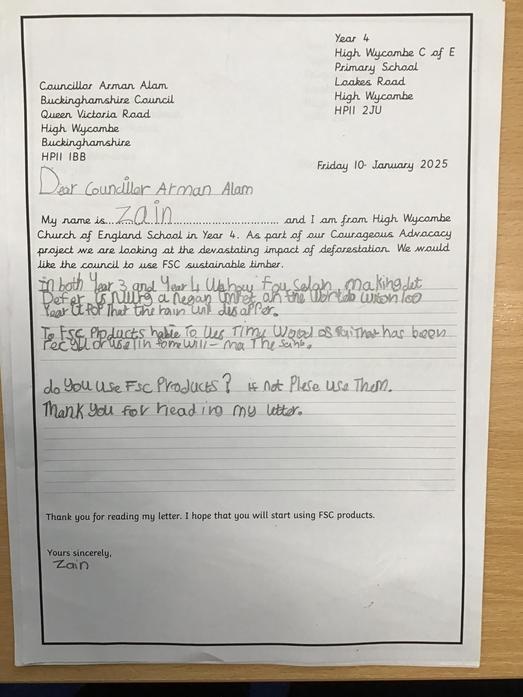 Year 4
High Wycombe C of E
Primary School
Loakes Road
High Wycombe
HP11 2JU
Councillor Arman Alam
Buckinghamshire Council
Queen Victoria Road
High Wycombe
Buckinghamshire
HP11 1BB
Friday 10- January 2025
Dear Councillor Arman Alam
My name is....Zain.... and I am from High Wycombe
Church of England School in Year 4. As part of our Courageous Advocacy
project we are looking at the devastating impact of deforestation. We would
like the council to use FSC sustainable timber.
In both Year 3 and Year 4
on the
Year that the
To FSC Products to Wood has been
or use in
do you use FSC Products? if not Plese use Them.
Thank you for reading my letter.
Thank you for reading my letter. I hope that you will start using FSC products.
Yours sincerely,
Zain